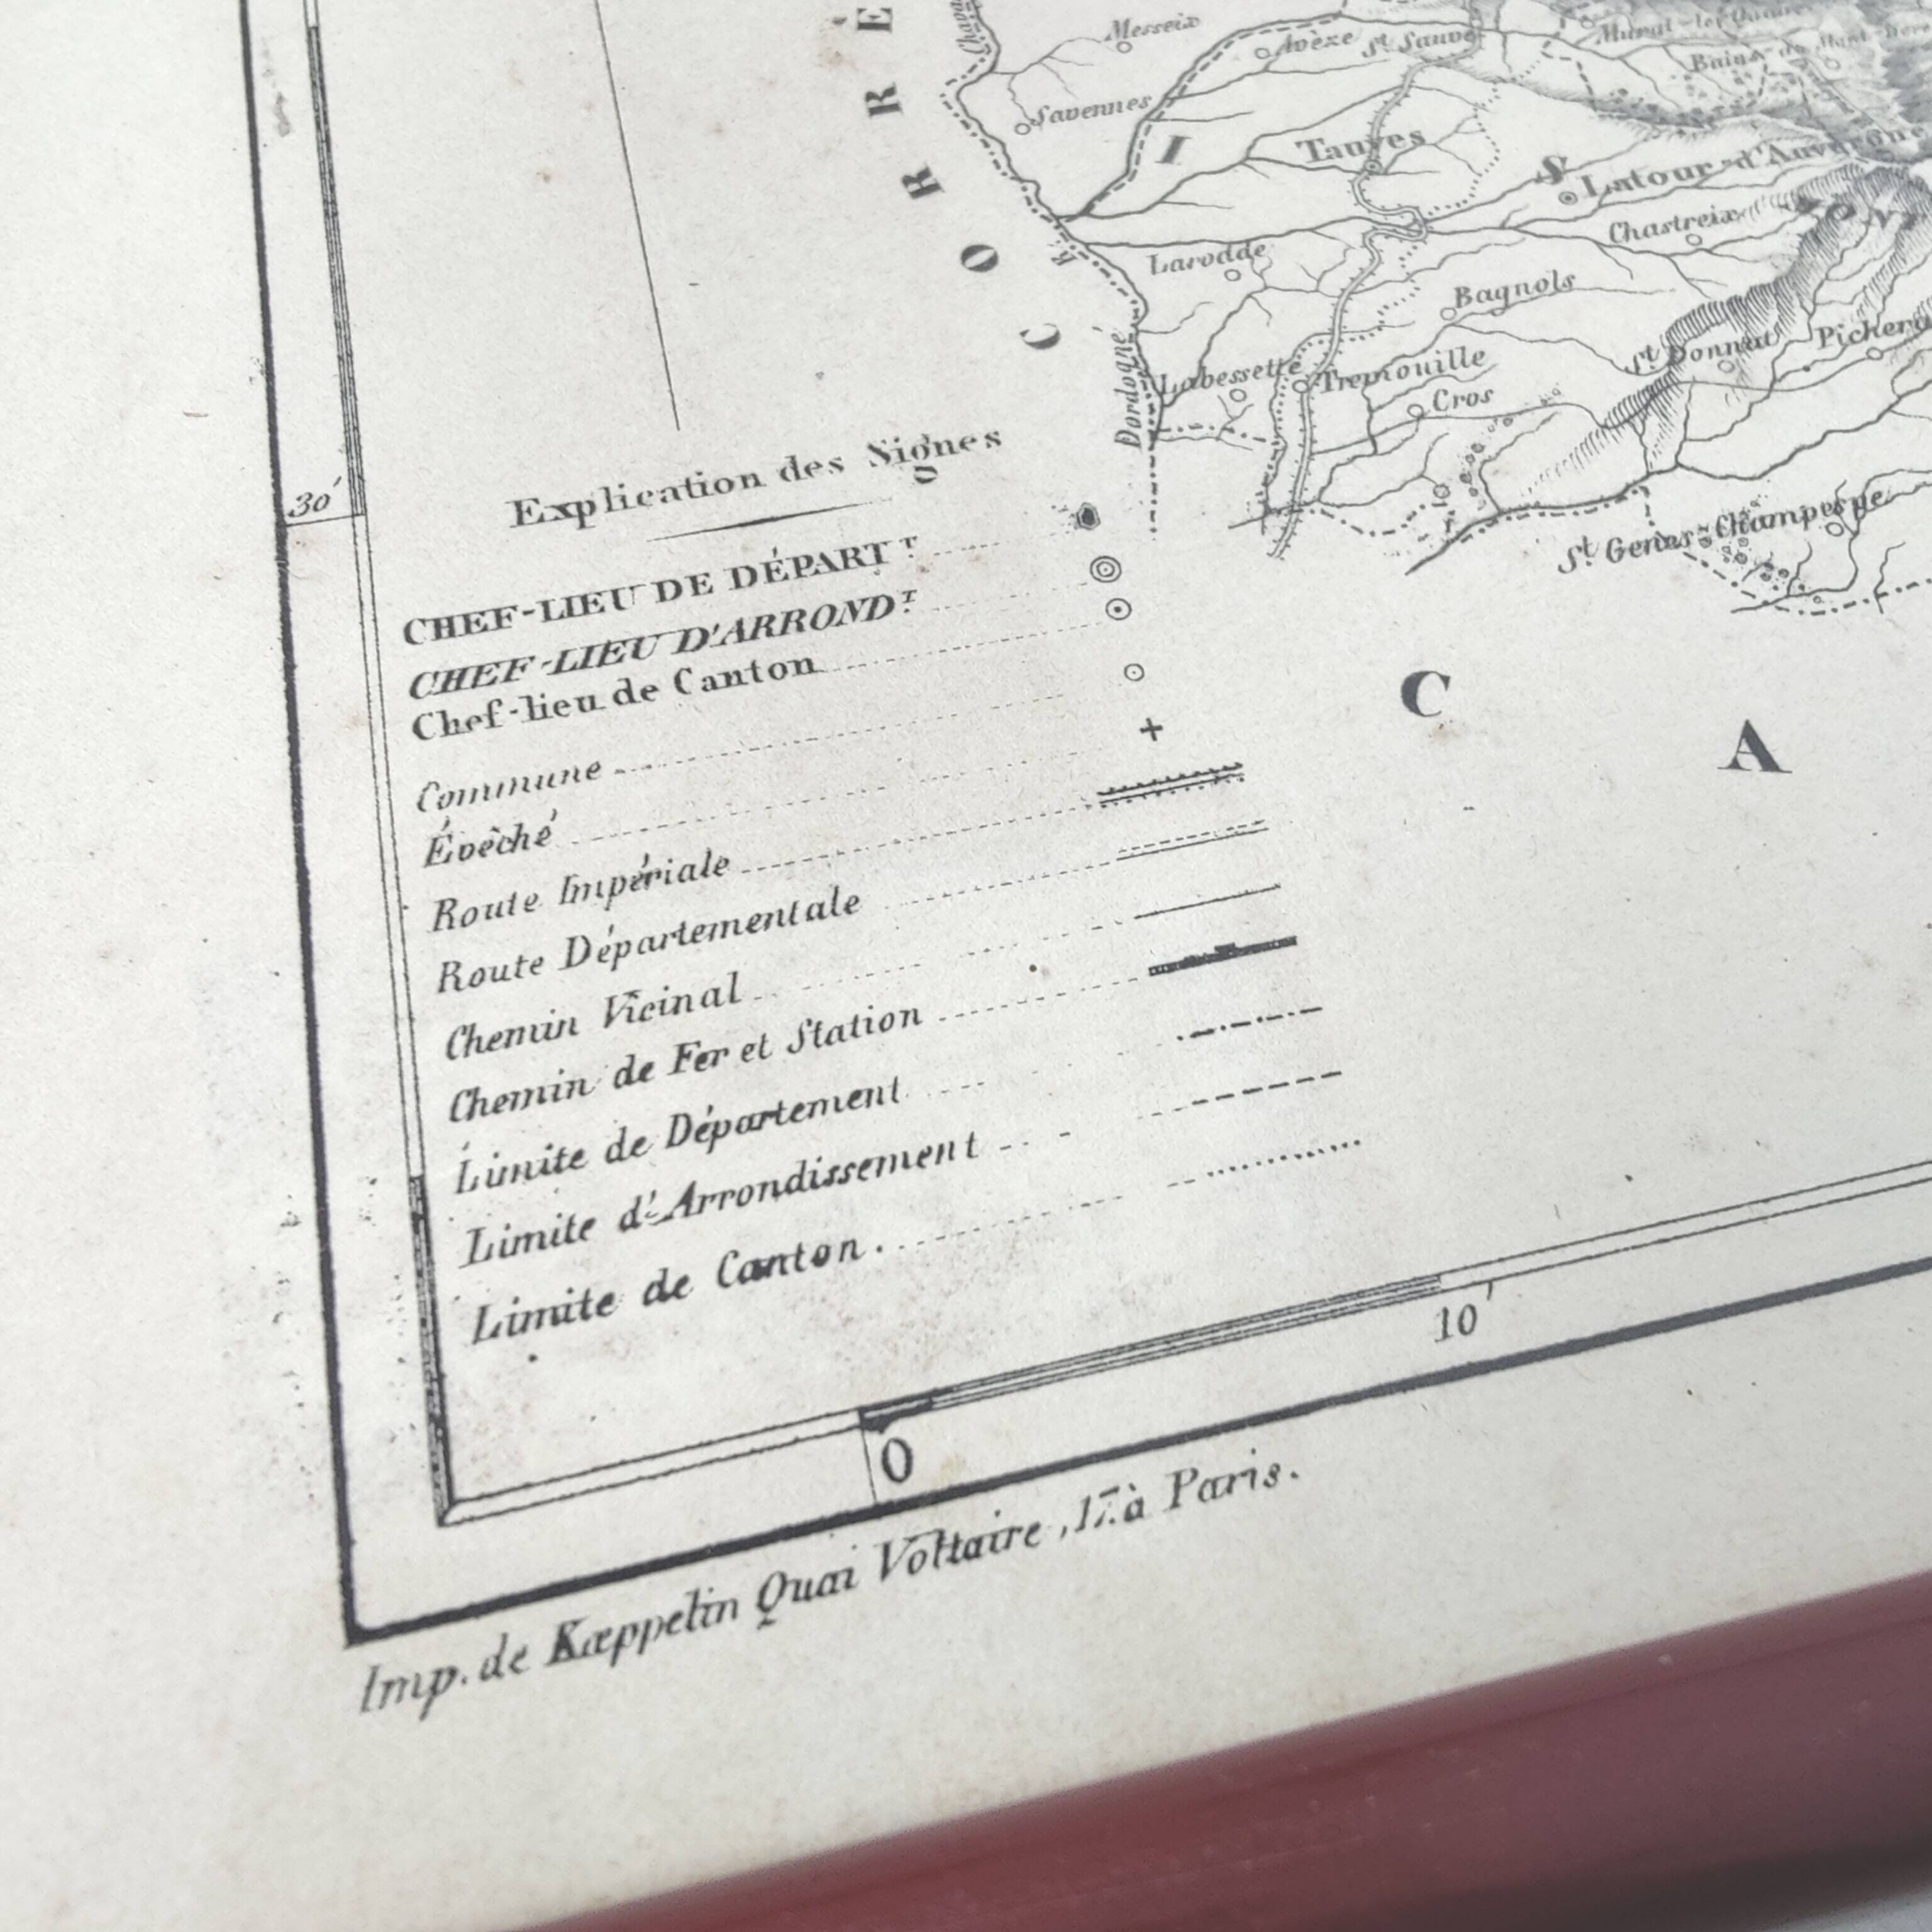 Messeix
Avèze
St Sauve
Murat-le-Quaire
Bains-du Mont-Dore
Savennes
I
Tauves
S
Latour-d'Auvergne
Chastreix
Larodde
Bagnols
CORRÈ
Dordogne
Labessette
Tremouille
Cros
St Donnat
Picher
St Genès-Champespe
C
A
30'
Explication des Signes
CHEF-LIEU DE DÉPART.T
CHEF-LIEU D'ARROND.T
Chef-lieu de Canton
Commune
Évêché
Route Impériale
Route Départementale
Chemin Vicinal
Chemin de Fer et Station
Limite de Département
Limite d'Arrondissement
Limite de Canton.
0
10'
Imp. de Kæppelin Quai Voltaire, 17. à Paris.